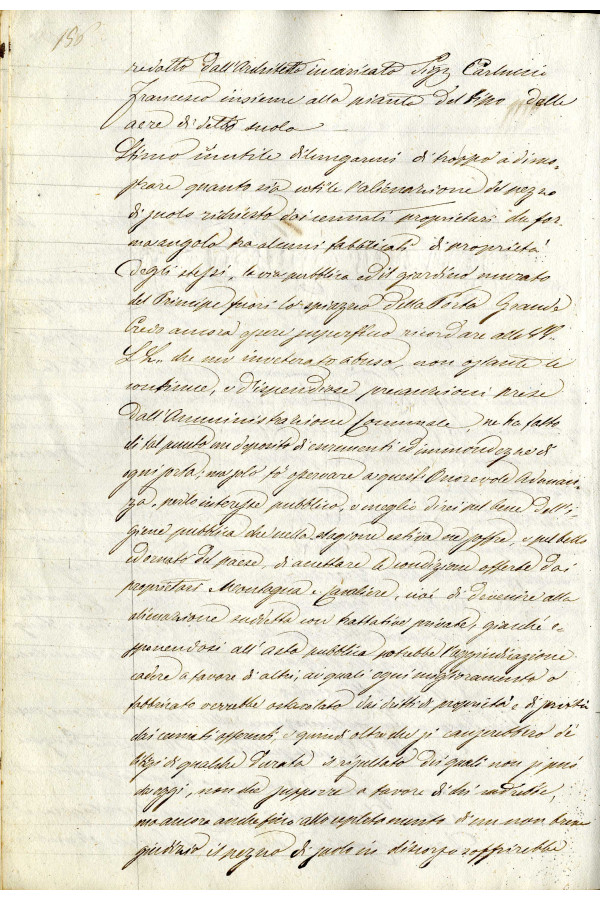 156
redatto dall'Architetto incaricato Sig. Carlucci
Francesco insieme alla pianta del tipo delle
aere di detto suolo
Stimo inutile dilungarmi di troppo a dimo-
strare quanto sia utile l'alienazione del pezzo
di suolo richiesto dai cennati proprietari da for-
mare angolo tra alcuni fabbricati di proprietà
degli stessi, la via pubblica ed il giardino murato
del Principe fuori lo spiazzo della Porta Grande
Credo ancora opera superflua ricordare alle
LL. che un inveterato abuso, non ostante le
continue, e dispendiose precauzioni prese
dall'Amministrazione Comunale, ne ha fatto
di tal punto un deposito di escrementi ed immondezze di
ogni sorta; ma solo fo osservare a quest'Onorevole Adunan-
za, nell'interesse pubblico, o meglio direi pel bene dell'I-
giene pubblica che nella stagione estiva ne soffre, e pel bello
ed ornato del paese, di accettare le condizioni offerte dai
proprietari Montagna e Cavaliere, cioè di devenire alla
alienazione suddetta con trattative private, giacché e-
sponendosi all'asta pubblica potrebbe l'aggiudicazione
cadere a favore di altri, ai quali ogni miglioramento o
fabbricato verrebbe ostacolato dai diritti di proprietà e di
dai cennati offerenti e quindi oltre che si
litigi di qualche durata il risultato dei quali non si può
da oggi, non che supporre a favore di chi
ma ancora anche fino all'espletamento di un non breve
giudizio il pezzo di suolo in discorso soffrirebbe